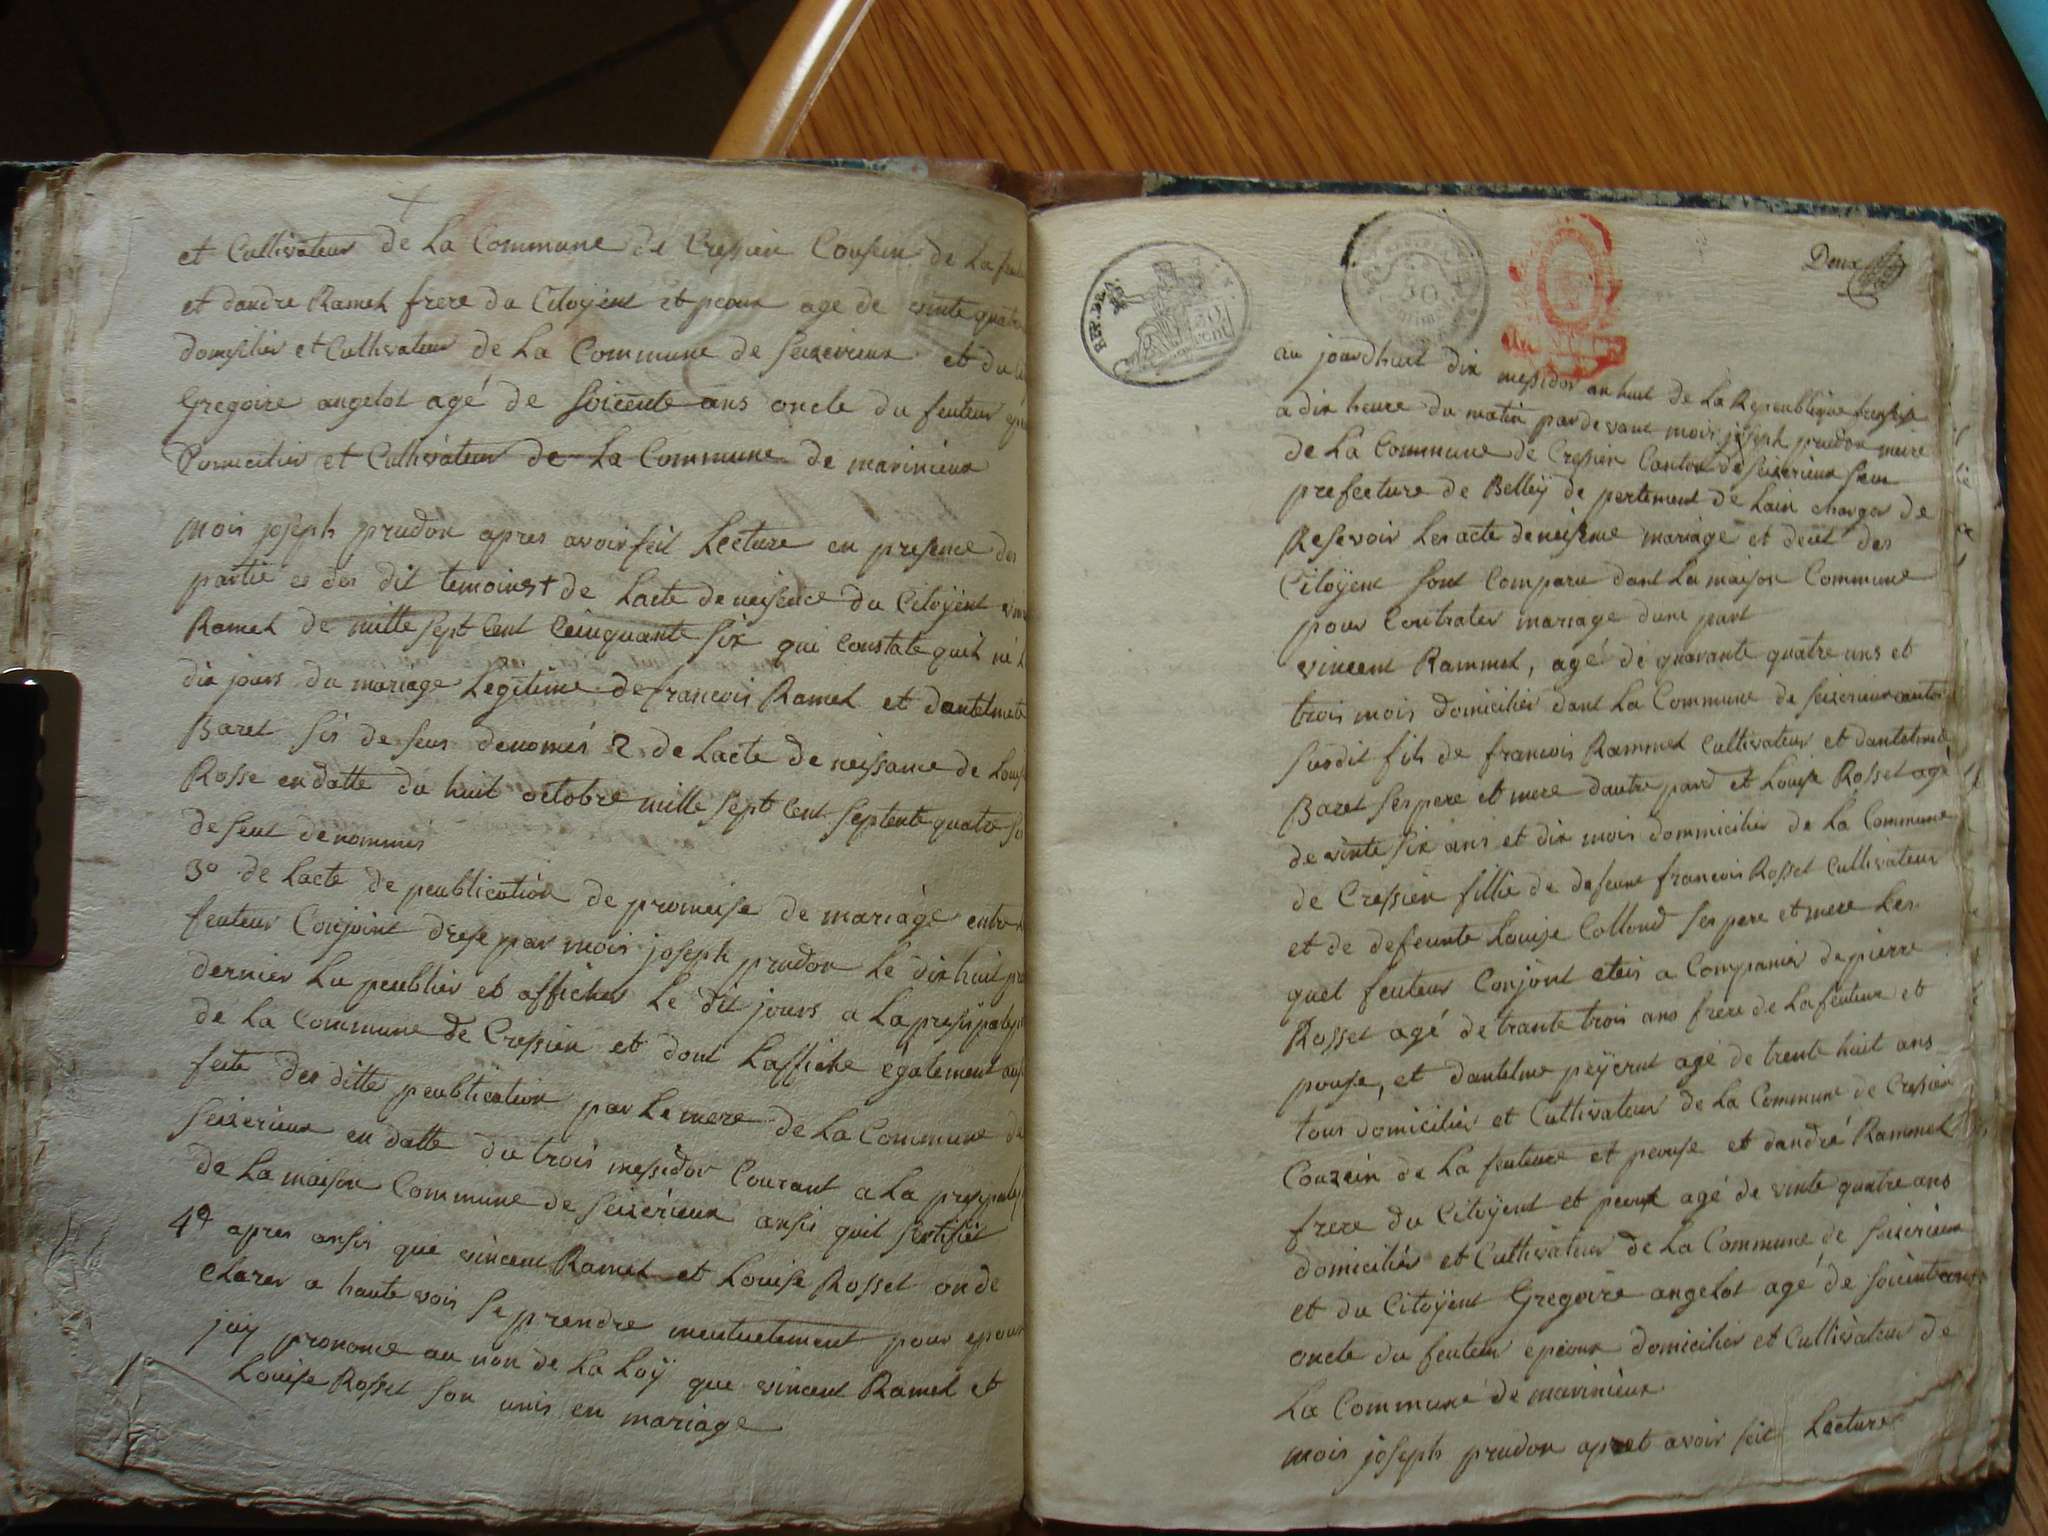 et Cultivateur de La Commune de Cressien Cousin de La
et dandre Ramel frere du Citoyent et peoux age de vinte quatre
domsilier et Cultivateur de La Commune de Seixerieux et du
Gregoire angelot agé de soicente ans oncle du feuteur
Domicilier et Cultivateur de La Commune de marinieux
mois joseph prudon apres avoir feit Lecture en presence des
partie es des dit temoins + de Lacte de neisence du Citoÿent
Ramel de mille sept Cent Ceinquante six qui Constate quil né
dix jours du mariage Legitime de francois Ramel et dantelmete
Baret sis de seus denomés 2 de Lacte de neissance de Louise
Rosse en datte du huit octobre mille sept Cent septente quatre
de seut denommés
3º de Lacte de peublication de promeise de mariage entre
feuteur Conjoint drese par mois joseph prudon Le dix huit
dernier Lu peublier et afficher Le dit jours a La
de La Commune de Cressien et dont Laffiche également
feite des ditte peublication par Le mere de La Commune de
Seixerieux en datte du trois messidor Courant a La
de La maison Commune de Seixérieux ansis quil Sertifiet
4º apres ansis que vincent Ramel et Louise Rosset onde
Clarer a haute vois se prendre meutuelement pour
jay prononce au non de La Loÿ que vincent Ramel et
Louise Rosset son unis en mariage
REP.
50
cent
Deux
au jourdhuit dix messidor an huit de La Republique
a dix heure du matin pardevant mois joseph prudon meire
de La Commune de Cressien Canton de Seixerieux seur
prefecture de Belleÿ de pertement de Lain charger de
Resevoir Les acte de neisence mariage et decet des
Citoÿent sont Comparu dant La maison Commune
pour Contrater mariage dune part
vincent Rammel, agé de quarante quatre ans et
trois mois domicilier dant La Commune de Seixerieux
susdit fils de francois Rammel Cultivateur et dantelmete
Baret ses pere et mere dautre pard et Louise Rosset agé
de vinte six ans et dix mois dommicilier de La Commune
de Cressien fillie de defeunt francois Rosset Cultivateur
et de defeunte Louise Collond ses pere et mere Les
quel feuteur Conjoint eteis a Companier de pierre
Rosset agé de trante trois ans frere de La feuteure et
pouse, et dantelme peÿerut agé de trente huit ans
tous domicilier et Cultivateur de La Commune de Cressien
Couzein de La feuteure et peouse et dandré Rammel
frere du Citoÿent et peoux agé de vinte quatre ans
domicilier et Cultivateur de La Commune de Seixerieux
et du Citoÿent Gregoire angelot agé de soicent ans
oncle du feuteur epeoux domicilier et Cultivateur de
La Commune de marinieux
mois joseph prudon apret avoir feit Lecture